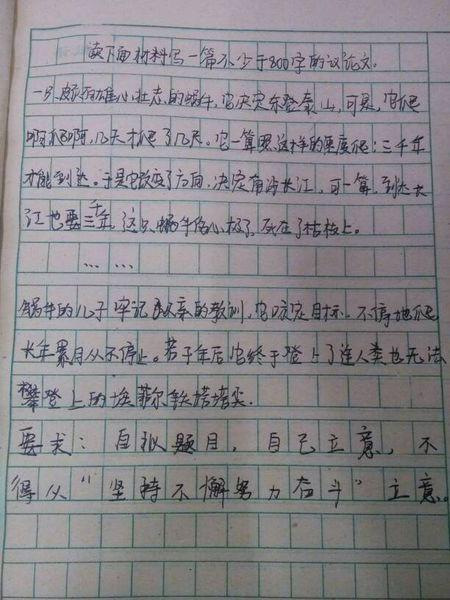 读下面材料写一篇不少于800字的议论文.
一只颇有雄心壮志的蜗牛,它决定东登泰山,可是,它爬
啊爬啊,几天才爬了几尺。它一算照这样的速度爬:三千年
才能到达。于是它改变了方向,决定南游长江,可一算,到达长
江也要三千年,这只蜗牛伤心极了,死在了枯枝上。
……
蜗牛的儿子牢记的教训,它确定目标,不停地爬
长年累月从不停止。若干年后它终于登上了连人类也无法
攀登上的埃菲尔铁塔塔尖.
要求:自拟题目,自己立意,不
得从"坚持不懈努力奋斗"立意。